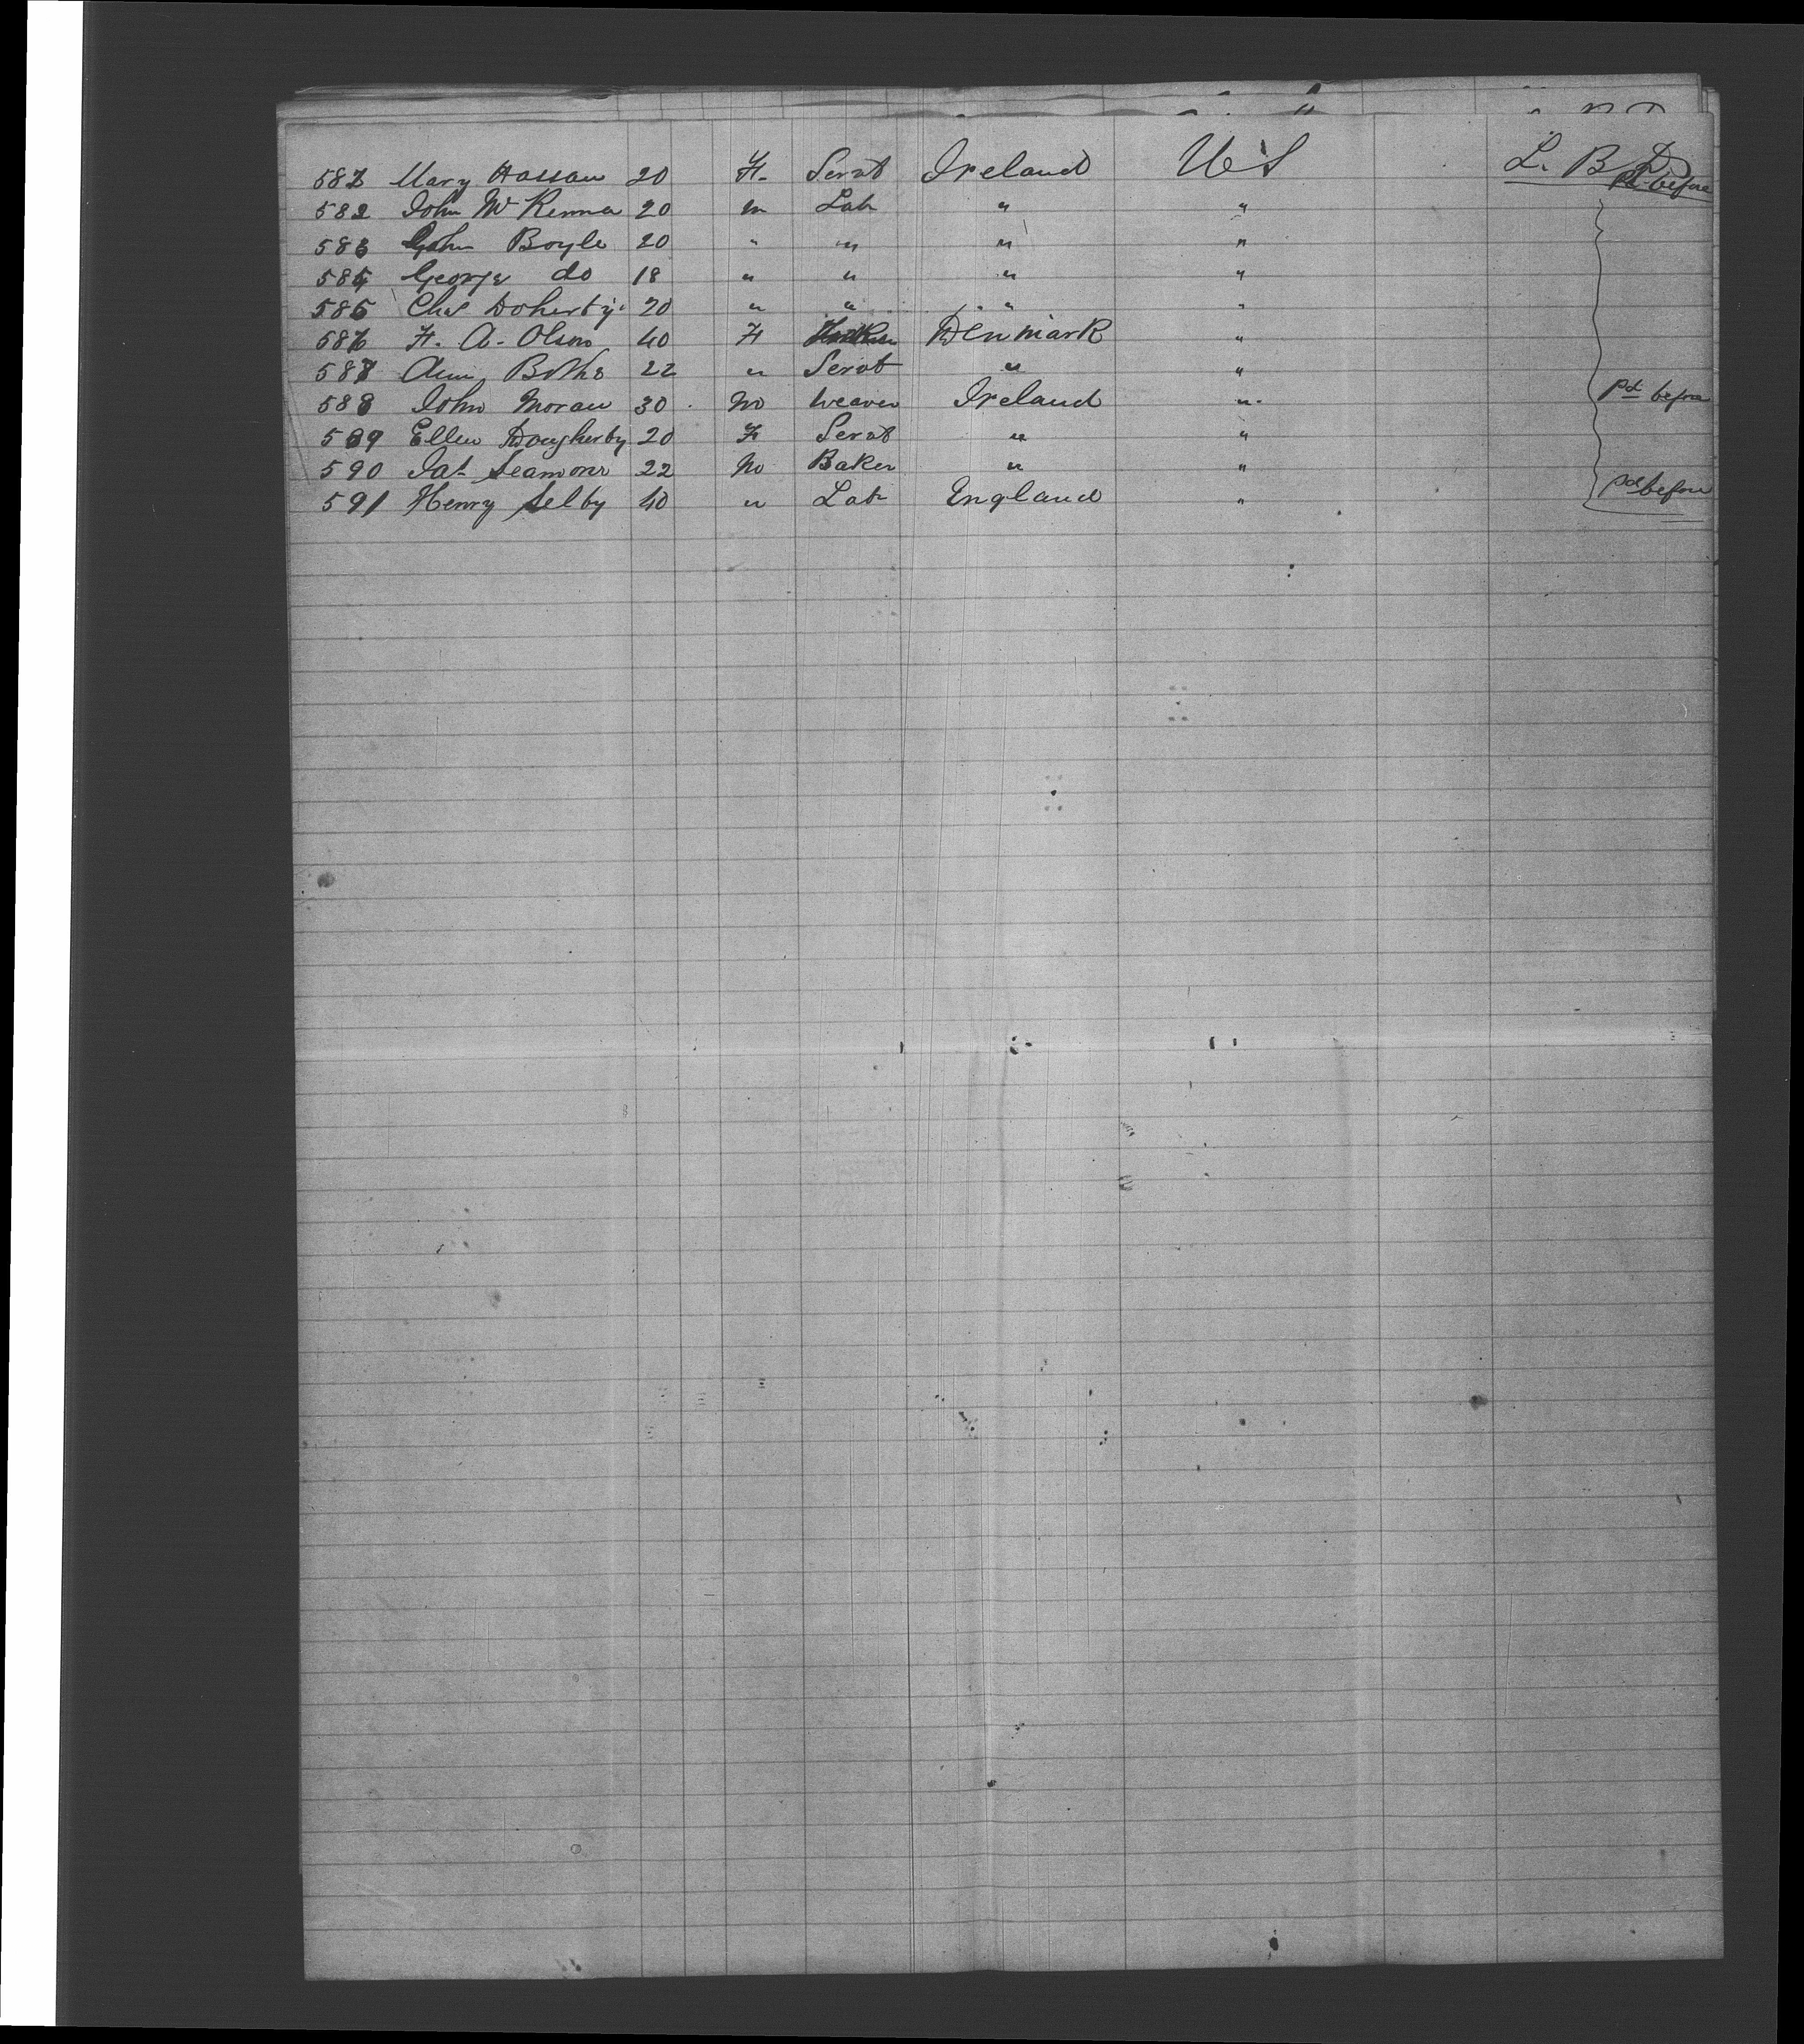 581 Mary Hassan 20 F. Servt Ireland U S L. B D pd before
582 John McKenna 20 m Lab " "
583 John Boyle 20 " " " "
584 George do 18 " " " "
585 Chas Doherty 20 " " " "
586 F. A. Olson 40 F Denmark "
587 Ann 22 " Servt " "
588 John Moran 30 M Weaver Ireland " pd before
589 Ellen Dougherty 20 F Servt " "
590 Pat 22 M Baker " "
591 Henry Selby 40 " Lab England " pd before